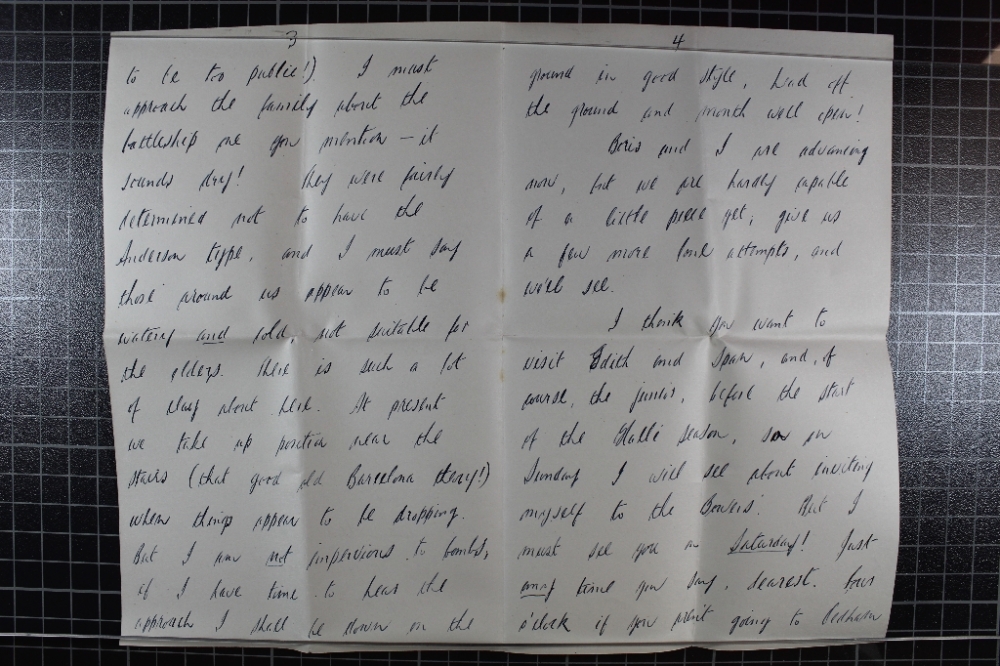 3
to be too public!). I must
approach the family about the
battleship one you mention – it
sounds dry! They were fairly
determined not to have the
Anderson type, and I must say
those around us appear to be
watery and cold, not suitable for
the elders. There is such a lot
of clay about here. At present
we take up position near the
stairs (that good old Barcelona theory!)
when things appear to be dropping.
But I am not impervious to bombs,
if I have time to hear the
approach I shall be down on the
4
ground in good style, head off
the ground and mouth well open!
Boris and I are advancing
now, but we are hardly capable
of a little piece yet; give us
a few more joint attempts, and
we'll see.
I think you want to
visit Edith and Span, and, of
course, the juniors, before the start
of the Hallé season, so on
Sunday I will see about inviting
myself to the Bowers'. But I
must see you on Saturday! Just
any time you say, dearest. Four
o'clock if you aren't going to